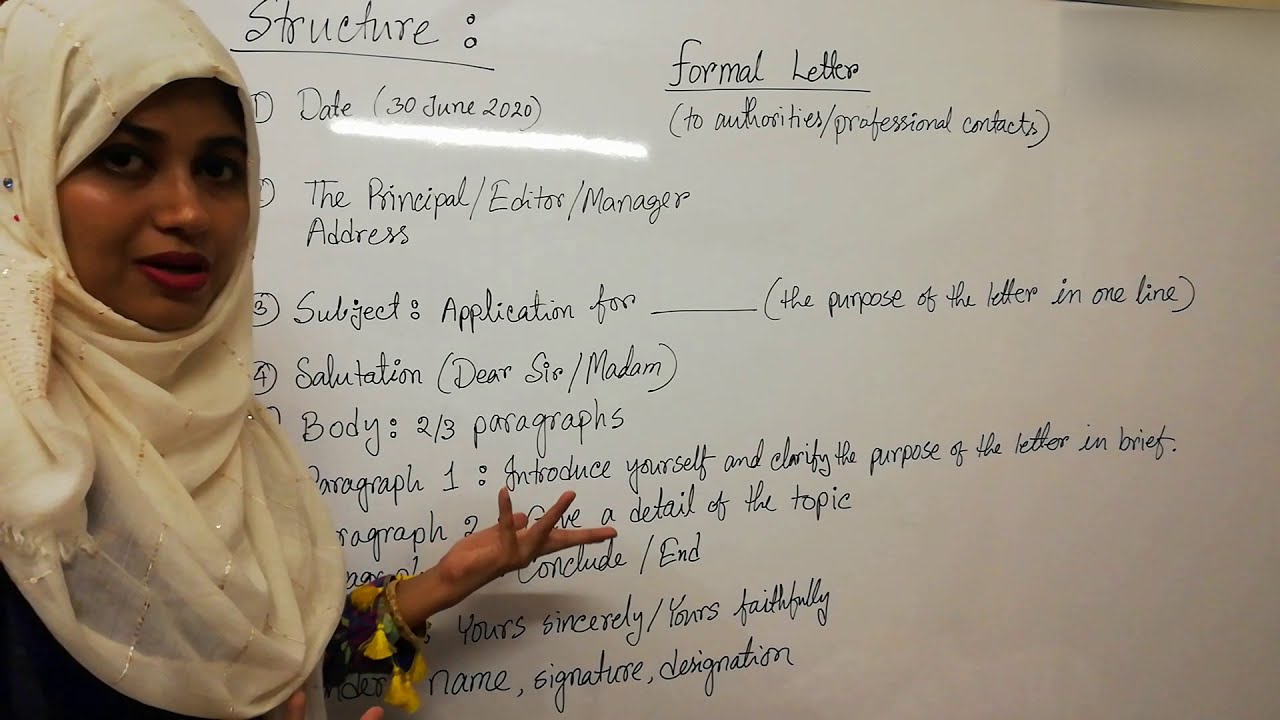 Structure :
Formal Letter
(to authorities/professional contacts)
1) Date (30 June 2020)
The Principal/Editor/Manager
Address
3) Subject: Application for ______ (the purpose of the letter in one line)
4) Salutation (Dear Sir/Madam)
Body: 2/3 paragraphs
Paragraph 1 : Introduce yourself and clarify the purpose of the letter in brief.
ragraph 2 : Give a detail of the topic
Conclude /End
: Yours sincerely/Yours faithfully
name, signature, designation